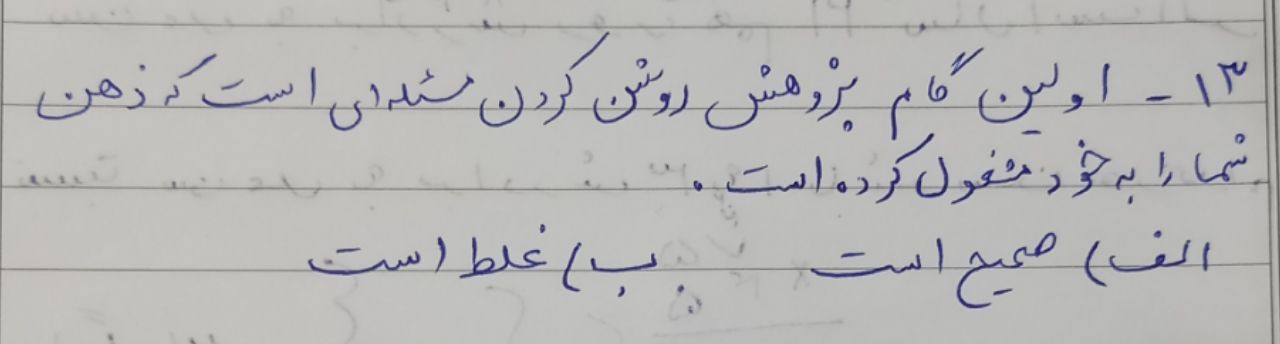 ۱۳- اولین گام پژوهش روشن کردن مسئله‌ای است که ذهن
شما را به خود مشغول کرده است.
الف) صحیح است ب) غلط است